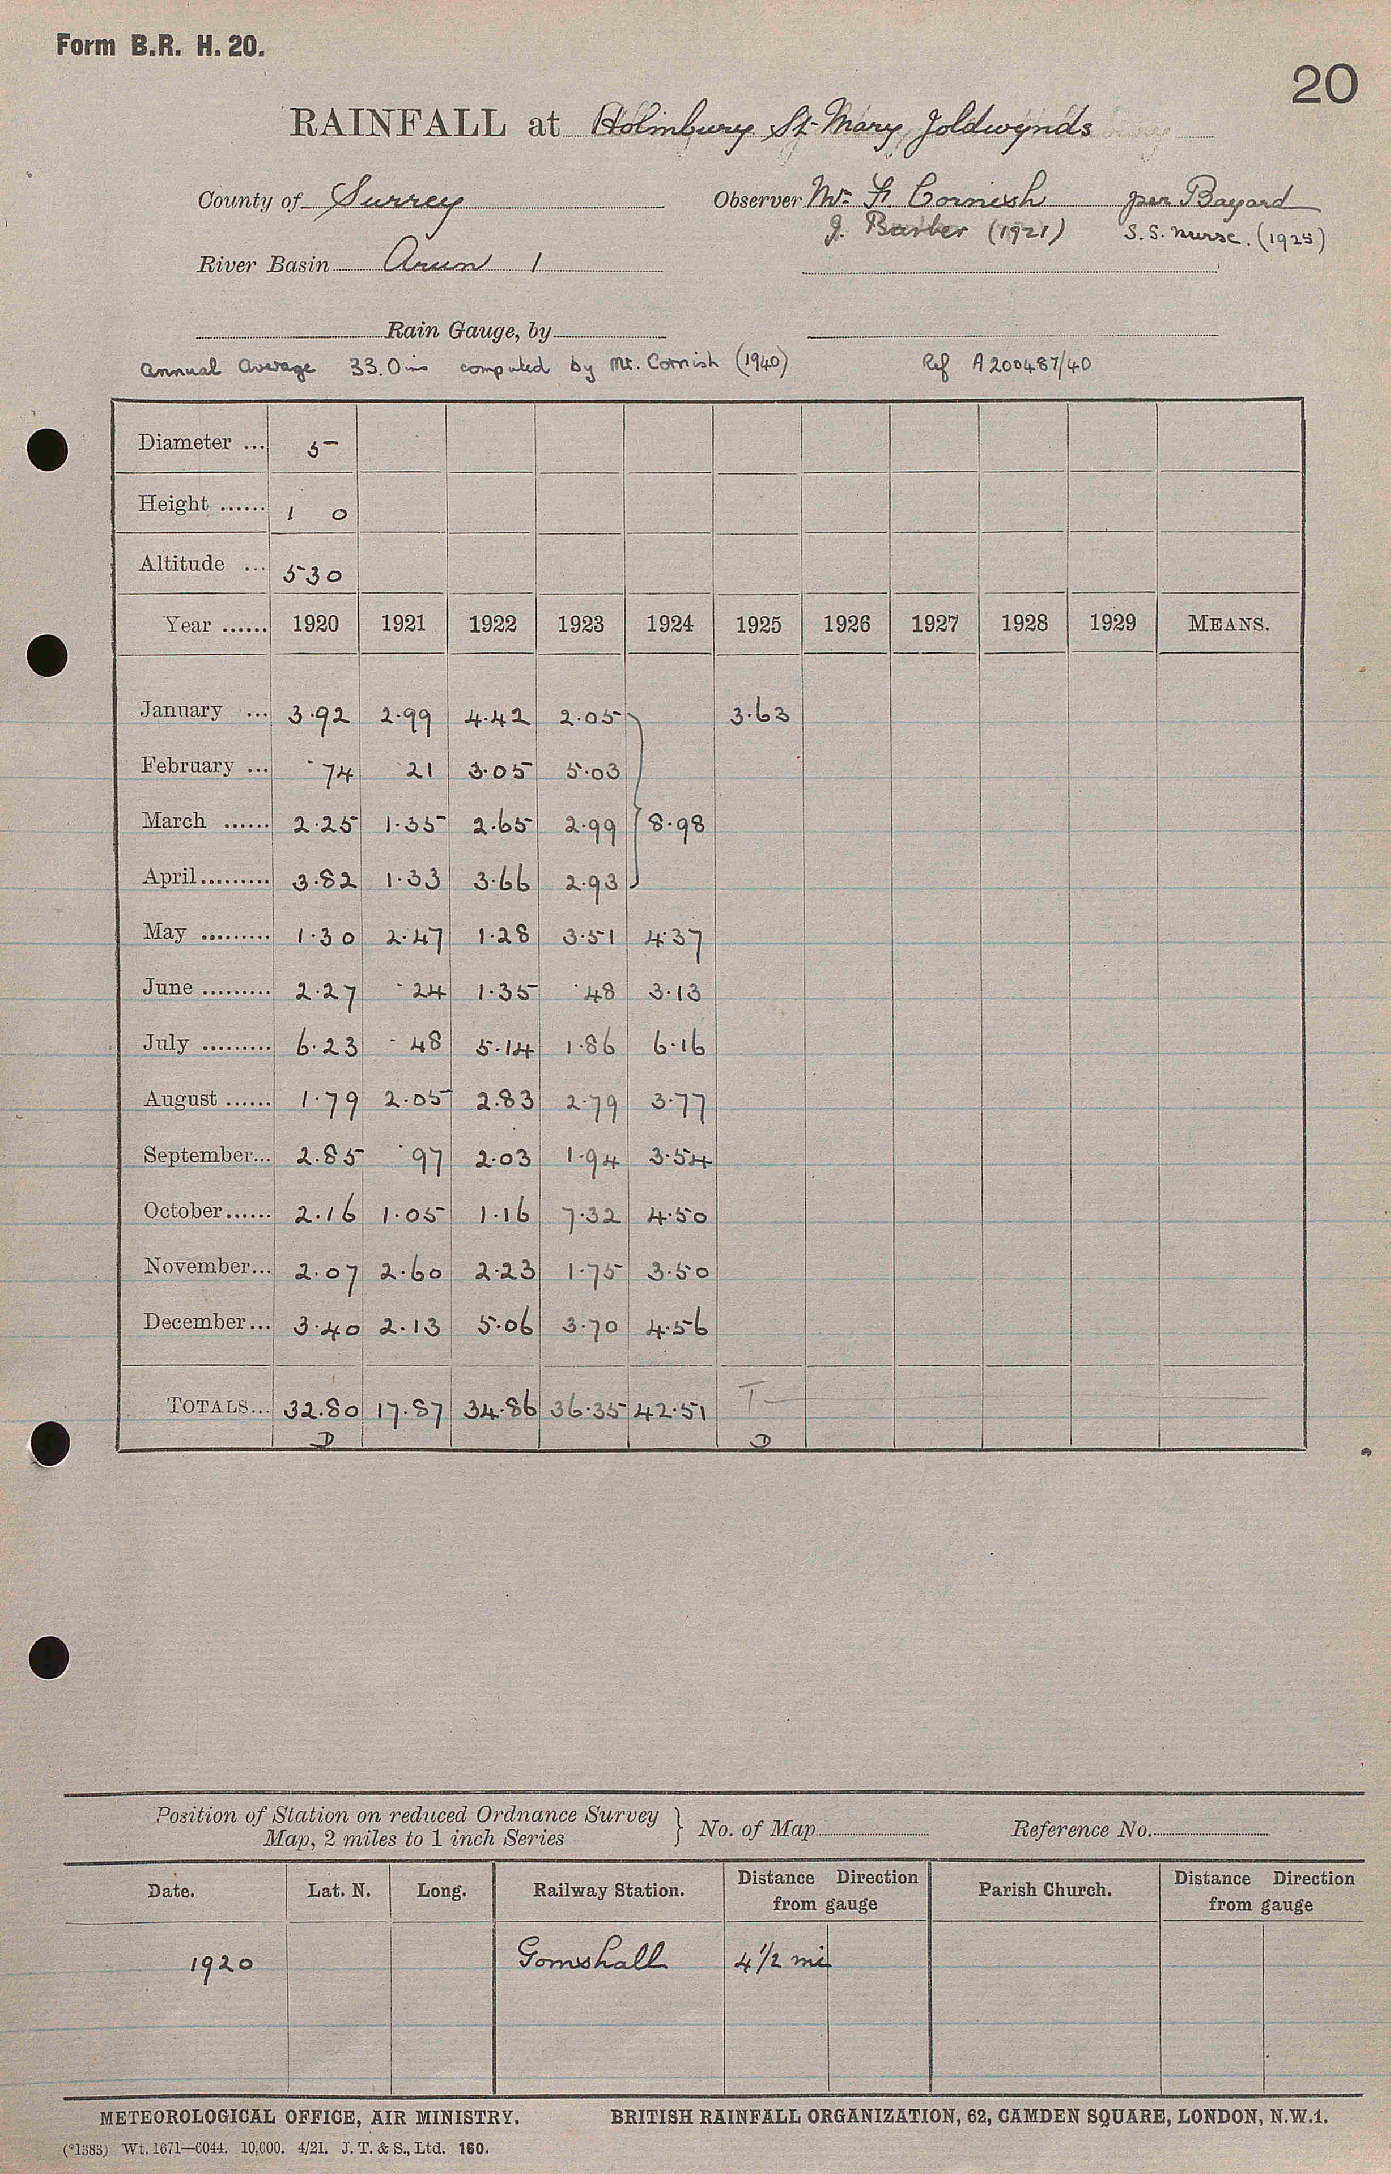 Form B.R. H. 20.
20
RAINFALL at Holmbury St. Mary, Joldwynds
County of Surrey
Observer Mr. F. Cornish per Bayard
J. Barber (1921) S.S. Nurse. (1925)
River Basin Arun 1
Rain Gauge, by
Annual Average 33.0 ins computed by Mr. Cornish (1940) Ref A200487/40
Diameter ... 5
Height ...... 1 0
Altitude ... 530
Year ...... 1920 1921 1922 1923 1924 1925 1926 1927 1928 1929 MEANS.
January ... 3.92 2.99 4.42 2.05 3.63
February ... .74 .21 3.05 5.03
March ...... 2.25 1.35 2.65 2.99 } 8.98
April ......... 3.82 1.33 3.66 2.93
May ......... 1.30 2.47 1.28 3.51 4.37
June ......... 2.27 .24 1.35 .48 3.13
July ......... 6.23 .48 5.14 1.86 6.16
August ...... 1.79 2.05 2.83 2.79 3.77
September... 2.85 .97 2.03 1.94 3.54
October...... 2.16 1.05 1.16 7.32 4.50
November... 2.07 2.60 2.23 1.75 3.50
December... 3.40 2.13 5.06 3.70 4.56
TOTALS... 32.80 17.87 34.86 36.35 42.51 T
D D
Position of Station on reduced Ordnance Survey
Map, 2 miles to 1 inch Series } No. of Map Reference No.
Date. Lat. N. Long. Railway Station. Distance Direction from gauge Parish Church. Distance Direction from gauge
1920 Gomshall 4 1/2 mi
METEOROLOGICAL OFFICE, AIR MINISTRY. BRITISH RAINFALL ORGANIZATION, 62, CAMDEN SQUARE, LONDON, N.W.1.
(*1383) Wt. 1671—6044. 10,000. 4/21. J. T. & S., Ltd. 160.